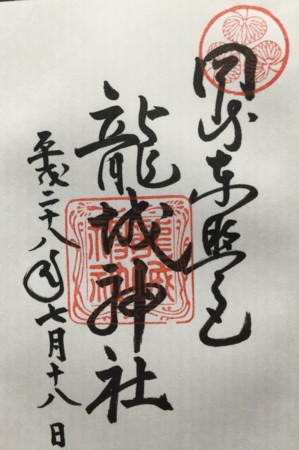 岡崎東照宮
龍城神社
平成二十八年七月十八日